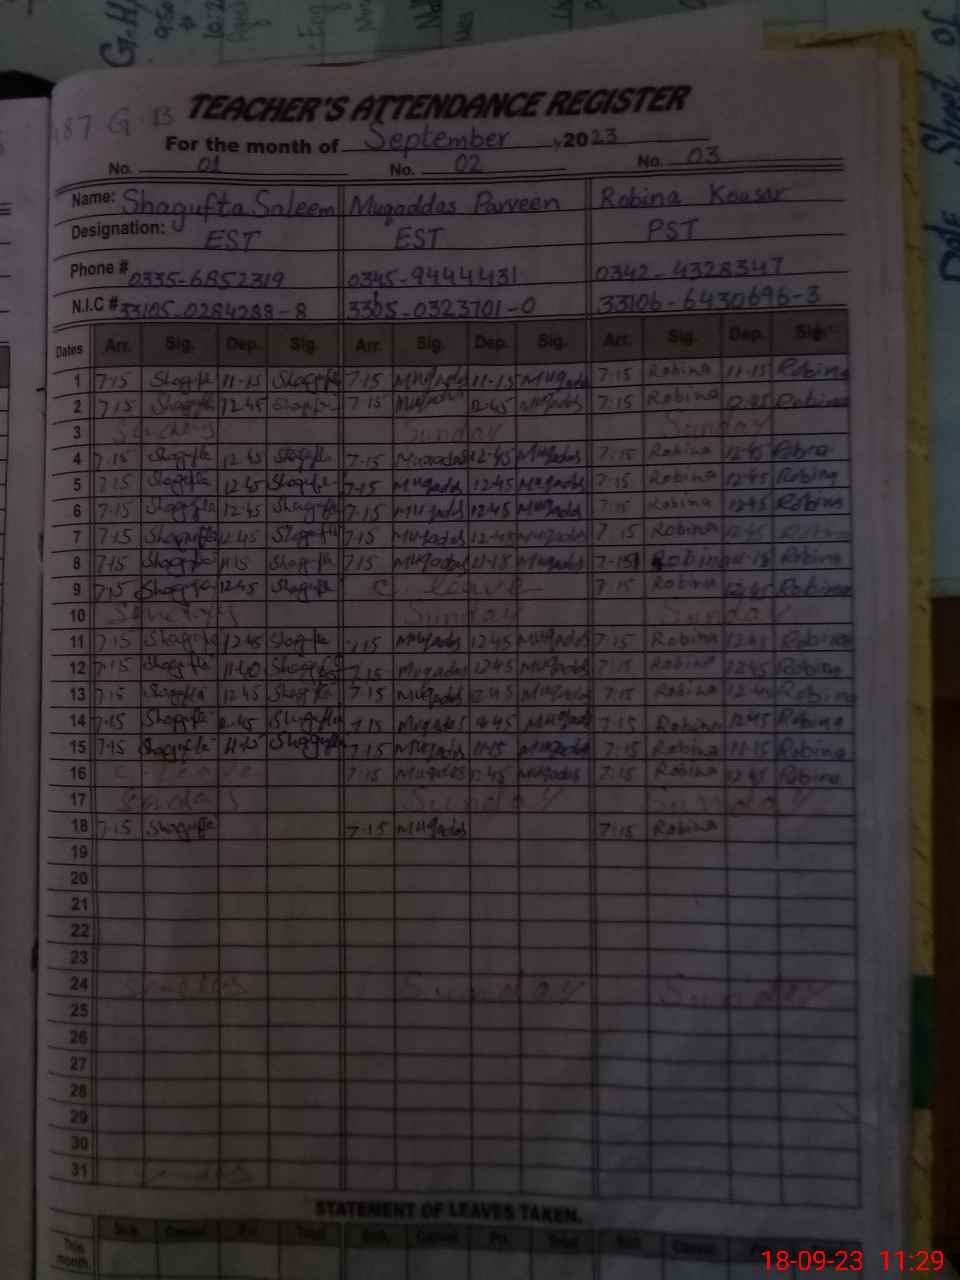 187 G.B
TEACHER'S ATTENDANCE REGISTER
For the month of September, 2023
No. 01 No. 02 No. 03
Name: Shagufta Saleem Muqaddas Parveen Robina Kousar
Designation: EST EST PST
Phone # 0335-6852319 0345-9444431 0342-4328347
N.I.C # 33105-0284288-8 33105-0323701-0 33106-6430696-3
Dates Arr. Sig. Dep. Sig. Arr. Sig. Dep. Sig. Arr. Sig. Dep. Sig.
1 7.15 Shagufta 11-15 Shagufta 7.15 Muqadas 11-15 Muqadas 7:15 Robina 11-15 Robina
2 7.15 Shagufta 12.45 Shagufta 7.15 Muqadas 12.45 Muqadas 7:15 Robina 12.45 Robina
3 Sunday Sunday Sunday
4 7.15 Shagufta 12.45 Shagufta 7.15 Muqadas 12.45 Muqadas 7:15 Robina 12.45 Robina
5 7.15 Shagufta 12.45 Shagufta 7.15 Muqadas 12.45 Muqadas 7:15 Robina 12.45 Robina
6 7.15 Shagufta 12.45 Shagufta 7.15 Muqadas 12.45 Muqadas 7:15 Robina 12.45 Robina
7 7.15 Shagufta 12.45 Shagufta 7.15 Muqadas 12.45 Muqadas 7.15 Robina 12.45
8 7.15 Shagufta 11.15 Shagufta 7.15 Muqadas 11-15 Muqadas 7-15 Robina 11-15 Robina
9 7.15 Shagufta 12.45 Shagufta C. leave 7.15 Robina 12.45 Robina
10 Sunday Sunday Sunday
11 7.15 Shagufta 12.45 Shagufta 7.15 Muqadas 12.45 Muqadas 7.15 Robina 12.45 Robina
12 7.15 Shagufta 11.40 Shagufta 7.15 Muqadas 12.45 Muqadas 7:15 Robina 12.45 Robina
13 7.15 Shagufta 12.45 Shagufta 7.15 Muqadas 12.45 Muqadas 7:15 Robina 12.45 Robina
14 7.15 Shagufta 12.45 Shagufta 7.15 Muqadas 12.45 Muqadas 7:15 Robina 12.45 Robina
15 7.15 Shagufta 11.15 Shagufta 7.15 Muqadas 11.15 Muqadas 7:15 Robina 11-15 Robina
16 C. Leave 7.15 Muqadas 12.45 Muqadas 7:15 Robina 12.45 Robina
17 Sunday Sunday Sunday
18 7.15 Shagufta 7.15 Muqadas 7:15 Robina
19
20
21
22
23
24 Sunday Sunday Sunday
25
26
27
28
29
30
31
STATEMENT OF LEAVES TAKEN.
Sick Casual Pri. Total Sick Casual Pri. Total Sick Casual
This month
Date Sheet of
18-09-23 11:29